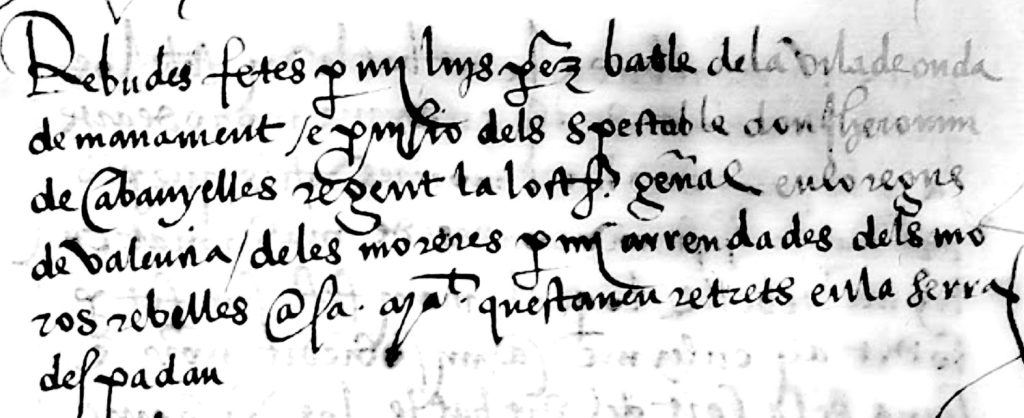 Rebudes fetes p mi luys perez batle de la vila de onda
de manament / e p missio dels spectable don Iheronim
de Cabanyelles regent la loct. general en lo regne
de valencia / de les moreres p mi arrendades dels mo
ros rebelles a sa . mat. questaven retrets en la serra
despadan